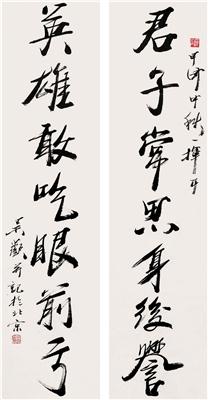 甲申中秋一揮耳
君子常思身後譽
英雄敢吃眼前亏
吳歡并記於北京